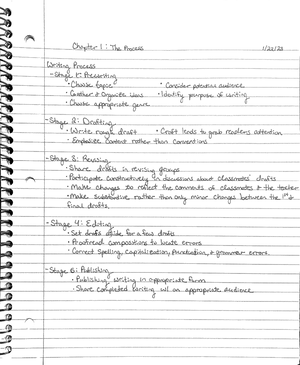 Chapter 1: The Process 1/23/23
Writing Process
- Stage 1: Prewriting
• Choose topic • Consider potential audience
• Gather & Organize ideas • Identify purpose of writing
• Choose appropriate genre
- Stage 2: Drafting
• Write rough draft • Craft leads to grab readers attention
• Emphasize content rather than conventions
- Stage 3: Revising
• Share drafts in revising groups
• Participate constructively in discussions about classmates' drafts
• Make changes to reflect the comments of classmates & the teacher
• Make substantive rather than only minor changes between the 1st &
final drafts.
- Stage 4: Editing
• Set drafts aside for a few drafts
• Proofread compositions to locate errors
• Correct Spelling, Capitalization, Punctuation, & grammar errors.
- Stage 5: Publishing
• Publishing writing in appropriate form
• Share completed writing w/ an appropriate audience